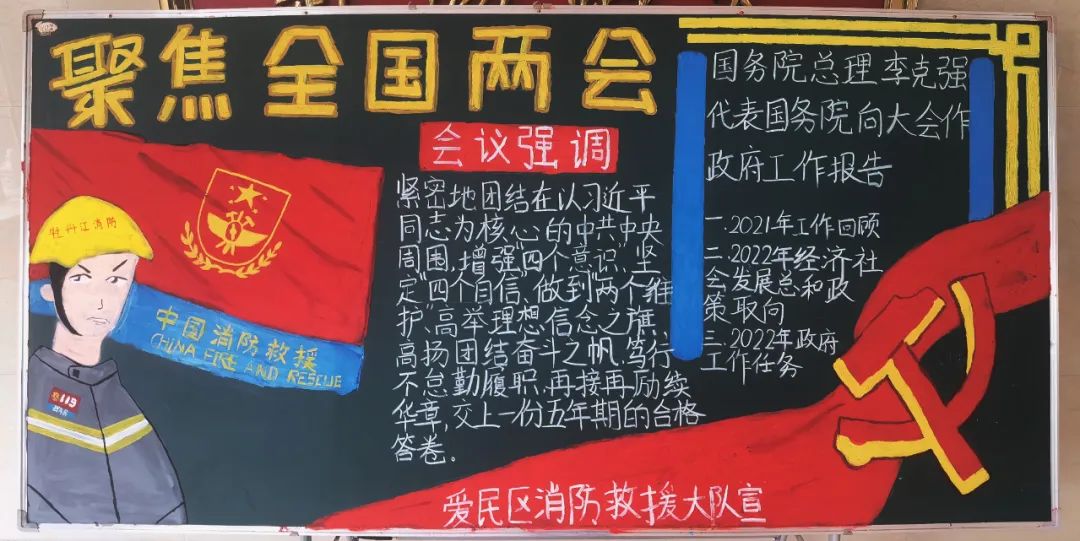 聚焦全国两会
会议强调
紧密地团结在以习近平
同志为核心的中共中央
周围,增强"四个意识"、坚
定"四个自信"、做到"两个维
护"、高举理想信念之旗,
高扬团结奋斗之帆,笃行
不怠勤履职,再接再励续
华章,交上一份五年期的合格
答卷.
国务院总理李克强
代表国务院向大会作
政府工作报告
一.2021年工作回顾
二.2022年经济社
会发展总和政
策取向
三.2022年政府
工作任务
牡丹江消防
中国消防救援
CHINA FIRE AND RESCUE
119
爱民区消防救援大队宣